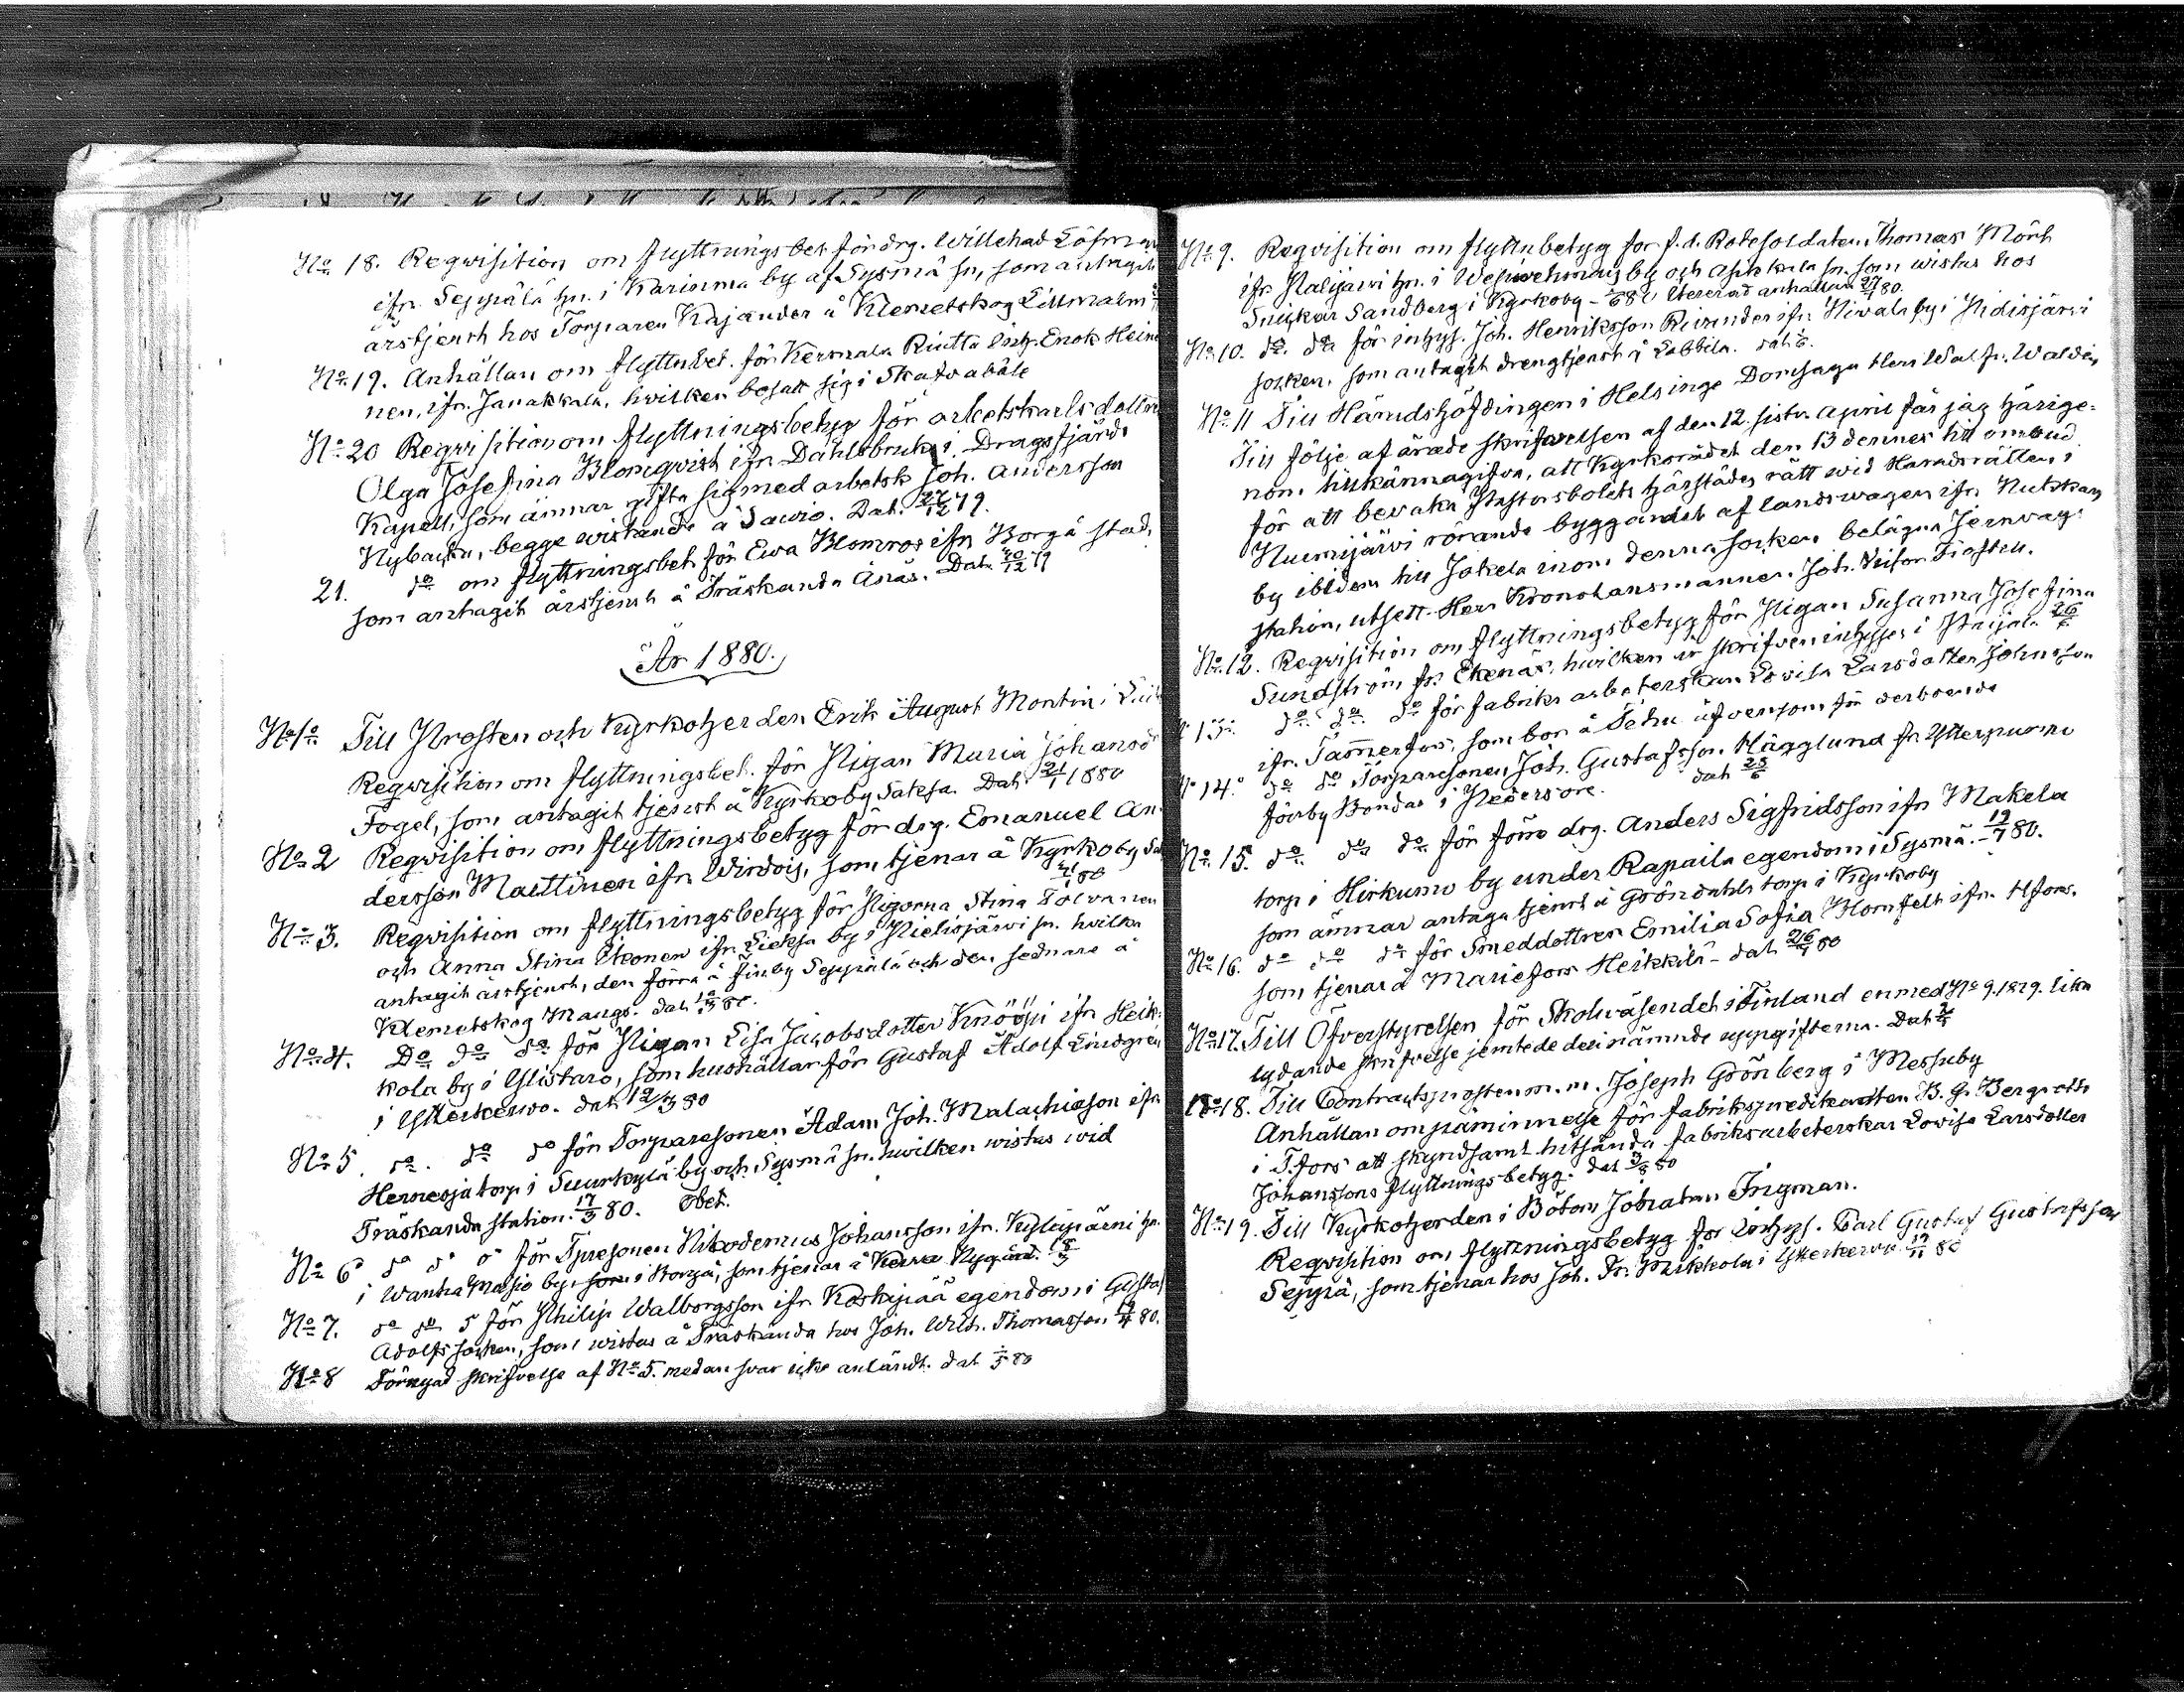 No 18. Reqvisition om flyttningsbet. för drg. Willehad Löfman
ifr. Seppälä hn. i Karisma by af Sysmä sn, som antagit
årstjenst hos Torparen Kajander å Klemetskog Lillmalm
No 19. Anhållan om flyttnbet. för Kersmala Rintta Inh. Enok Heino
nen, ifr. Janakkala, hvilken besatt sig i Skafvabåle
No 20 Reqvisition om flyttningsbetyg för arbetskarlsdottr
Olga Josefina Blomqvist ifr. Dahlsbruk i Dragsfjärds
Kapell, som ämnar gifta sig med arbetsk. Joh. Andersson
Nybacka, begge wistande å Sawio. Dat. 27/12 79.
21. do om flyttningsbet. för Ewa Blomros ifr. Borgå stad,
som antagit årstjenst å Träskända Ånäs. Dat. 30/12 79
År 1880.
No 1o Till Prosten och Kyrkoherden Erik August Montin i
Reqvisition om flyttningsbet. för Pigan Maria Johansdr
Fogel, som antagit tjenst å Kyrkoby Saksa. Dat. 21/1 1880
No 2 Reqvisition om flyttningsbetyg för drg. Emanuel An-
dersson Marttinen ifr. Wirdois, som tjenar å Kyrkoby
21/1 80
No 3. Reqvisition om flyttningsbetyg för Pigorna Stina Tolvanen
och Anna Stina Ekonen ifr. Lieksa by i Pielisjärvi sn. hvilka
antagit årstjenst, den förra å Finby Seppälä och den sednare å
Klemetskog Mangs. dat. 10/3 80.
No 4. Do do do för Pigan Lisa Jacobsdotter Knööpi ifr. Heik-
kola by i Ylistaro, som hushållar för Gustaf Adolf Lindgren
i Ytterkerwo. dat. 12/3 80
No 5. do. do do för Torparesonen Adam Joh. Malachiasson ifr
Hernesjä torp i Suurkylä by och Sysmä sn. hwilken wistas wid
Träskända station. 17/3 80. Obet.
No 6 do do do för Tjuresonen Nikodemus Johansson ifr. Kylänpäreni hn.
i Wanha Moisio by, i Borgå, som tjenar å Kerwo Nygård. 8/3
No 7. do do do för Philip Walborgsson ifr. Koskipää egendom i Gustaf
Adolfs socken, som wistas å Träskända hos Joh. Wilh. Thomasson 19/4 80.
No 8 Förnyad skrifvelse af No 5. medan svar icke anländt. dat. 1/5 80
No 9. Reqvisition om flyttnbetyg för f.d. Rotesoldaten Thomas Mört
ifr. Palijärvi hn. i Wehwehmaa by och Asikkala sn. som wistas hos
Snickar Sandberg i Kyrkoby - /6 80 Itererad anhållan 27/7 80.
No 10. do. do för inhys. Joh. Henriksson Reinander ifr. Niwala by i Pidisjärvi
socken, som antagit drengtjenst i Labbila. dat. /6.
No 11 Till Häradshöfdingen i Helsinge Domsaga Herr Wal. fr. Waldén
Till följe af ärade skrifvelsen af den 12. sistn. April får jag härige-
nom tillkännagifva, att Kyrkorådet den 13 dennes till ombud
för att bevaka Pastorsbolets härstädes rätt wid Häradsrätten i
Nurmijärvi rörande byggandet af landswägen ifr. Nukkari
by ibidem till Jokela inom denna socken belägna Jernvägs-
station, utsett Herr Kronolänsmannen Joh.
No 12. Reqvisition om flyttningsbetyg för Pigan Susanna Josefina
Sundström fr. Ekenäs, hwilken är skrifven inhyses i Paijala 26/6
No 13. do. do. do för fabriks arbeterskan Lovisa Larsdotter Johnsson
ifr. Tammerfors, som bor å Tehu äfvensom för derboende
No 14. do do Torparesonen Joh. Gustafsson Hägglund fr. Ytterpurmo
förby Bondas i Pedersöre. dat. 28/6
No 15. do. do do för förre drg. Anders Sigfridsson ifr. Makela
torp i Hirkumo by under Rapaila egendom i Sysmä. 19/7 80.
som ämnar antaga tjenst å Gröndahls torp i Kyrkoby
No 16. do do do för Smeddottren Emilia Sofia Hornfelt ifr. Hfors.
som tjenar å Mariefors Heikkilä - dat. 26/7 80
No 17. Till Öfverstyrelsen för Skolväsendet i Finland en med No 9. 1879. lika
lydande skrifvelse jemte de deri nämnde uppgifterna. Dat.
No 18. Till Contractsprosten m.m. Joseph Grönberg i Messuby
Anhållan om påminnelse för fabrikspredikanten B. G. Bergroth
i Tfors att skyndsamt hitsända fabriksarbeterskan Lovisa Larsdotter
Johanssons flyttningsbetyg. dat. 3/8 80
No 19. Till Kyrkoherden i Bötom Johatan Ingman.
Reqvisition om flyttningsbetyg för Inhys. Carl Gustaf Gustafsson
Seppä, som tjenar hos Joh. Fr. Mikkola i Ytterkerwo 19/11 80